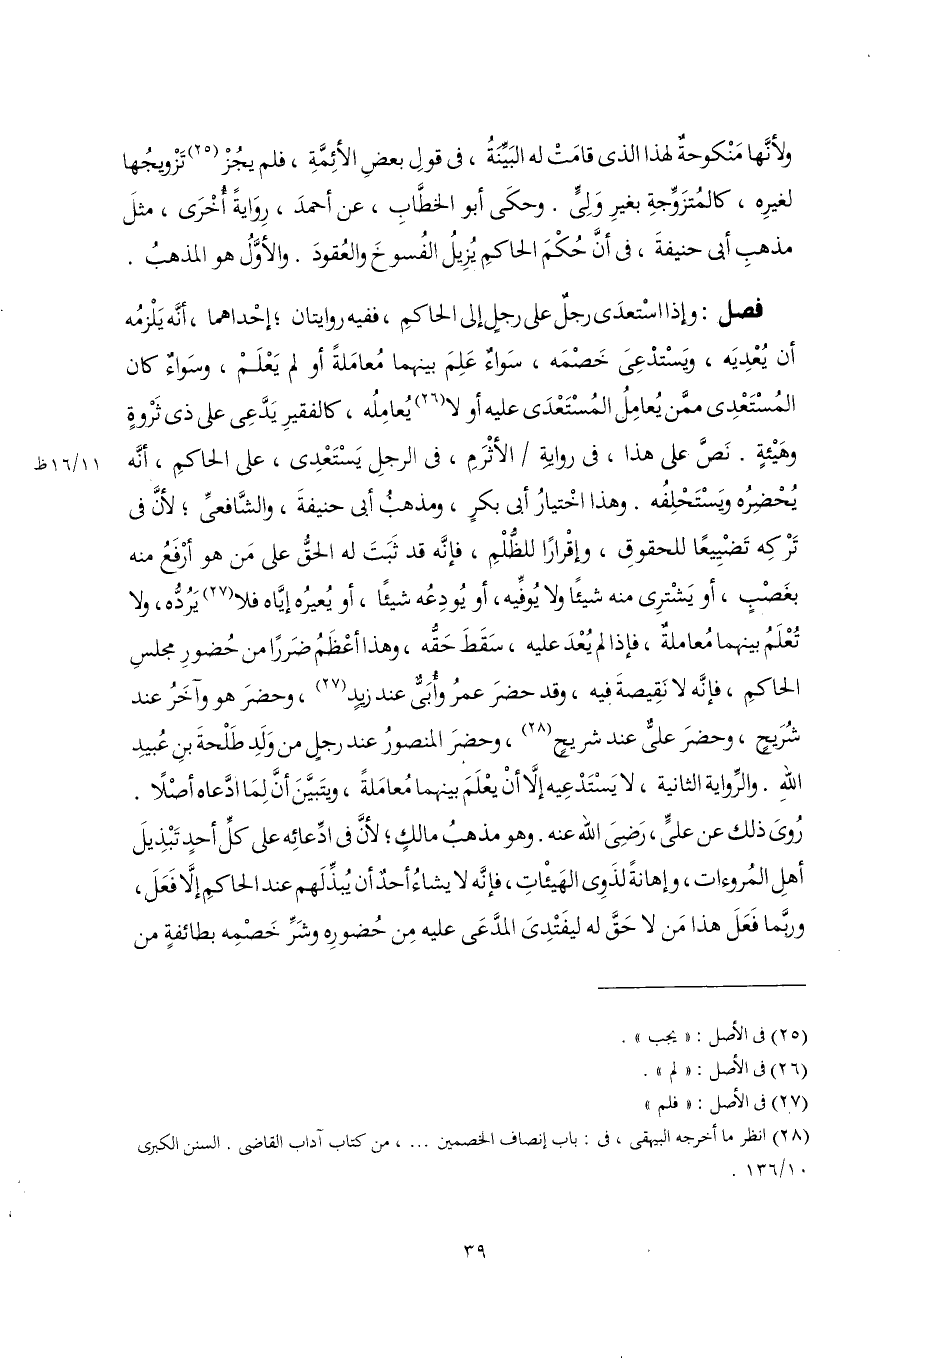 ولأنَّها مَنْكوحةٌ لهذا الذى قامَتْ له البَيِّنَةُ ، فى قولِ بعضِ الأئِمَّةِ ، فلم يجُزْ (٢٥)تَزْويجُها
لغيرِه ، كالمُتزَوِّجةِ بغيرِ وَلِىٍّ . وحكَى أبو الخطَّابِ ، عن أحمدَ ، رِوَايةً أُخْرَى ، مثلَ
مذهبِ أبى حنيفةَ ، فى أنَّ حُكْمَ الحاكمِ يُزِيلُ الفُسوخَ والعُقودَ . والأوَّلُ هو المذهبُ .
فصل : وإذا اسْتعدَى رجلٌ على رجلٍ إلى الحاكمِ ، ففيه روايتان ؛ إحْداهما ، أنَّه يَلْزمُه
أن يُعْدِيَه ، ويَسْتَدْعِىَ خَصْمَه ، سَواءٌ عَلِمَ بينهما مُعاملةً أو لم يَعْلَمْ ، وسَواءٌ كان
المُسْتَعْدِى ممَّن يُعامِلُ المُسْتَعْدَى عليه أو لا(٢٦) يُعامِلُه ، كالفقيرِ يَدَّعِى على ذى ثَرْوةٍ
وهَيْئةٍ . نَصَّ على هذا ، فى روايةِ / الأثْرَمِ ، فى الرجلِ يَسْتَعْدِى ، على الحاكمِ ، أنَّه ١٦/١١ظ
يُحْضِرُه ويَسْتَحْلِفُه . وهذا اخْتيارُ أبى بكرٍ ، ومذهبُ أبى حنيفةَ ، والشَّافعىِّ ؛ لأنَّ فى
تَرْكِه تَضْيِيعًا للحقوقِ ، وإقْرارًا للظُّلْمِ ، فإنَّه قد ثَبَتَ له الحقُّ على مَن هو أرْفَعُ منه
بغَصْبٍ ، أو يَشْترِى منه شيئًا ولا يُوفِّيه، أو يُودِعُه شيئًا ، أو يُعيرُه إيَّاه فلا(٢٧) يَرُدُّه، ولا
تُعْلَمُ بينهما مُعاملةٌ ، فإذا لم يُعْدَ عليه ، سقَطَ حَقُّه ، وهذا أعْظَمُ ضررًا من حُضورِ مجلسِ
الحاكمِ ، فإنَّه لا نَقِيصةَ فيه ، وقد حضرَ عمرُ وأُبَىٌّ عند زيدٍ(٢٧) ، وحضرَ هو وآخَرُ عند
شُرَيحٍ ، وحضرَ علىٌّ عند شريحٍ(٢٨) ، وحضرَ المنصورُ عند رجلٍ من وَلَدِ طَلْحةَ بنِ عُبيدِ
اللهِ . والرِّواية الثانية ، لا يَسْتَدْعِيه إلَّا أنْ يعْلَمَ بينهما مُعامَلةً ، ويتبيَّنَ أنَّ لِمَا ادَّعاه أصْلًا .
رُوِىَ ذلك عن علىٍّ ، رَضِىَ الله عنه . وهو مذهبُ مالكٍ ؛ لأنَّ فى ادِّعائِه على كلِّ أحدٍ تَبْذيلَ
أهلِ المُروءات ، وإهانةً لذَوِى الهَيْئاتِ ، فإنَّه لا يشاءُ أحدٌ أن يُبذِّلَهم عند الحاكمِ إلَّا فَعَلَ ،
وربَّما فَعَلَ هذا مَن لا حَقَّ له ليفْتَدِىَ المدَّعَى عليه مِن حُضورِه وشَرِّ خَصْمِه بطائفةٍ من
(٢٥) فى الأصل : « يجب » .
(٢٦) فى الأصل : « لم » .
(٢٧) فى الأصل : « فلم »
(٢٨) انظر ما أخرجه البيهقى ، فى : باب إنصاف الخصمين ... ، من كتاب آداب القاضى . السنن الكبرى
١٣٦/١٠ .
٣٩